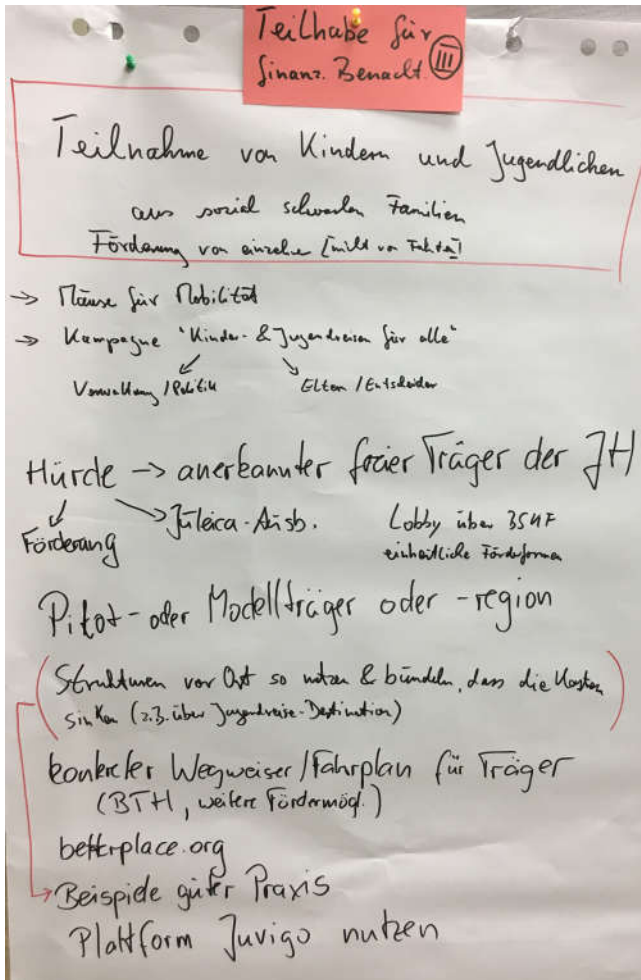 Teilhabe für
finanz. Benacht. III
Teilnahme von Kindern und Jugendlichen
aus sozial schwachen Familien
Förderung von einzelne [nicht von Fahrten]
→ Mäuse für Mobilität
→ Kampagne "Kinder- & Jugendreisen für alle"
Verwaltung/Politik
Eltern/Entscheider
Hürde → anerkannter freier Träger der JH
Förderung
Juleica-Ausb.
Lobby über
einheitliche Förderformen
Pilot- oder Modellträger oder -region
(Strukturen vor Ort so nutzen & bündeln, dass die Kosten
sinken (z.B. über Jugendreise-Destination))
konkreter Wegweiser/Fahrplan für Träger
(BTH, weitere Fördermögl.)
betterplace.org
→ Beispiele guter Praxis
Plattform Juvigo nutzen